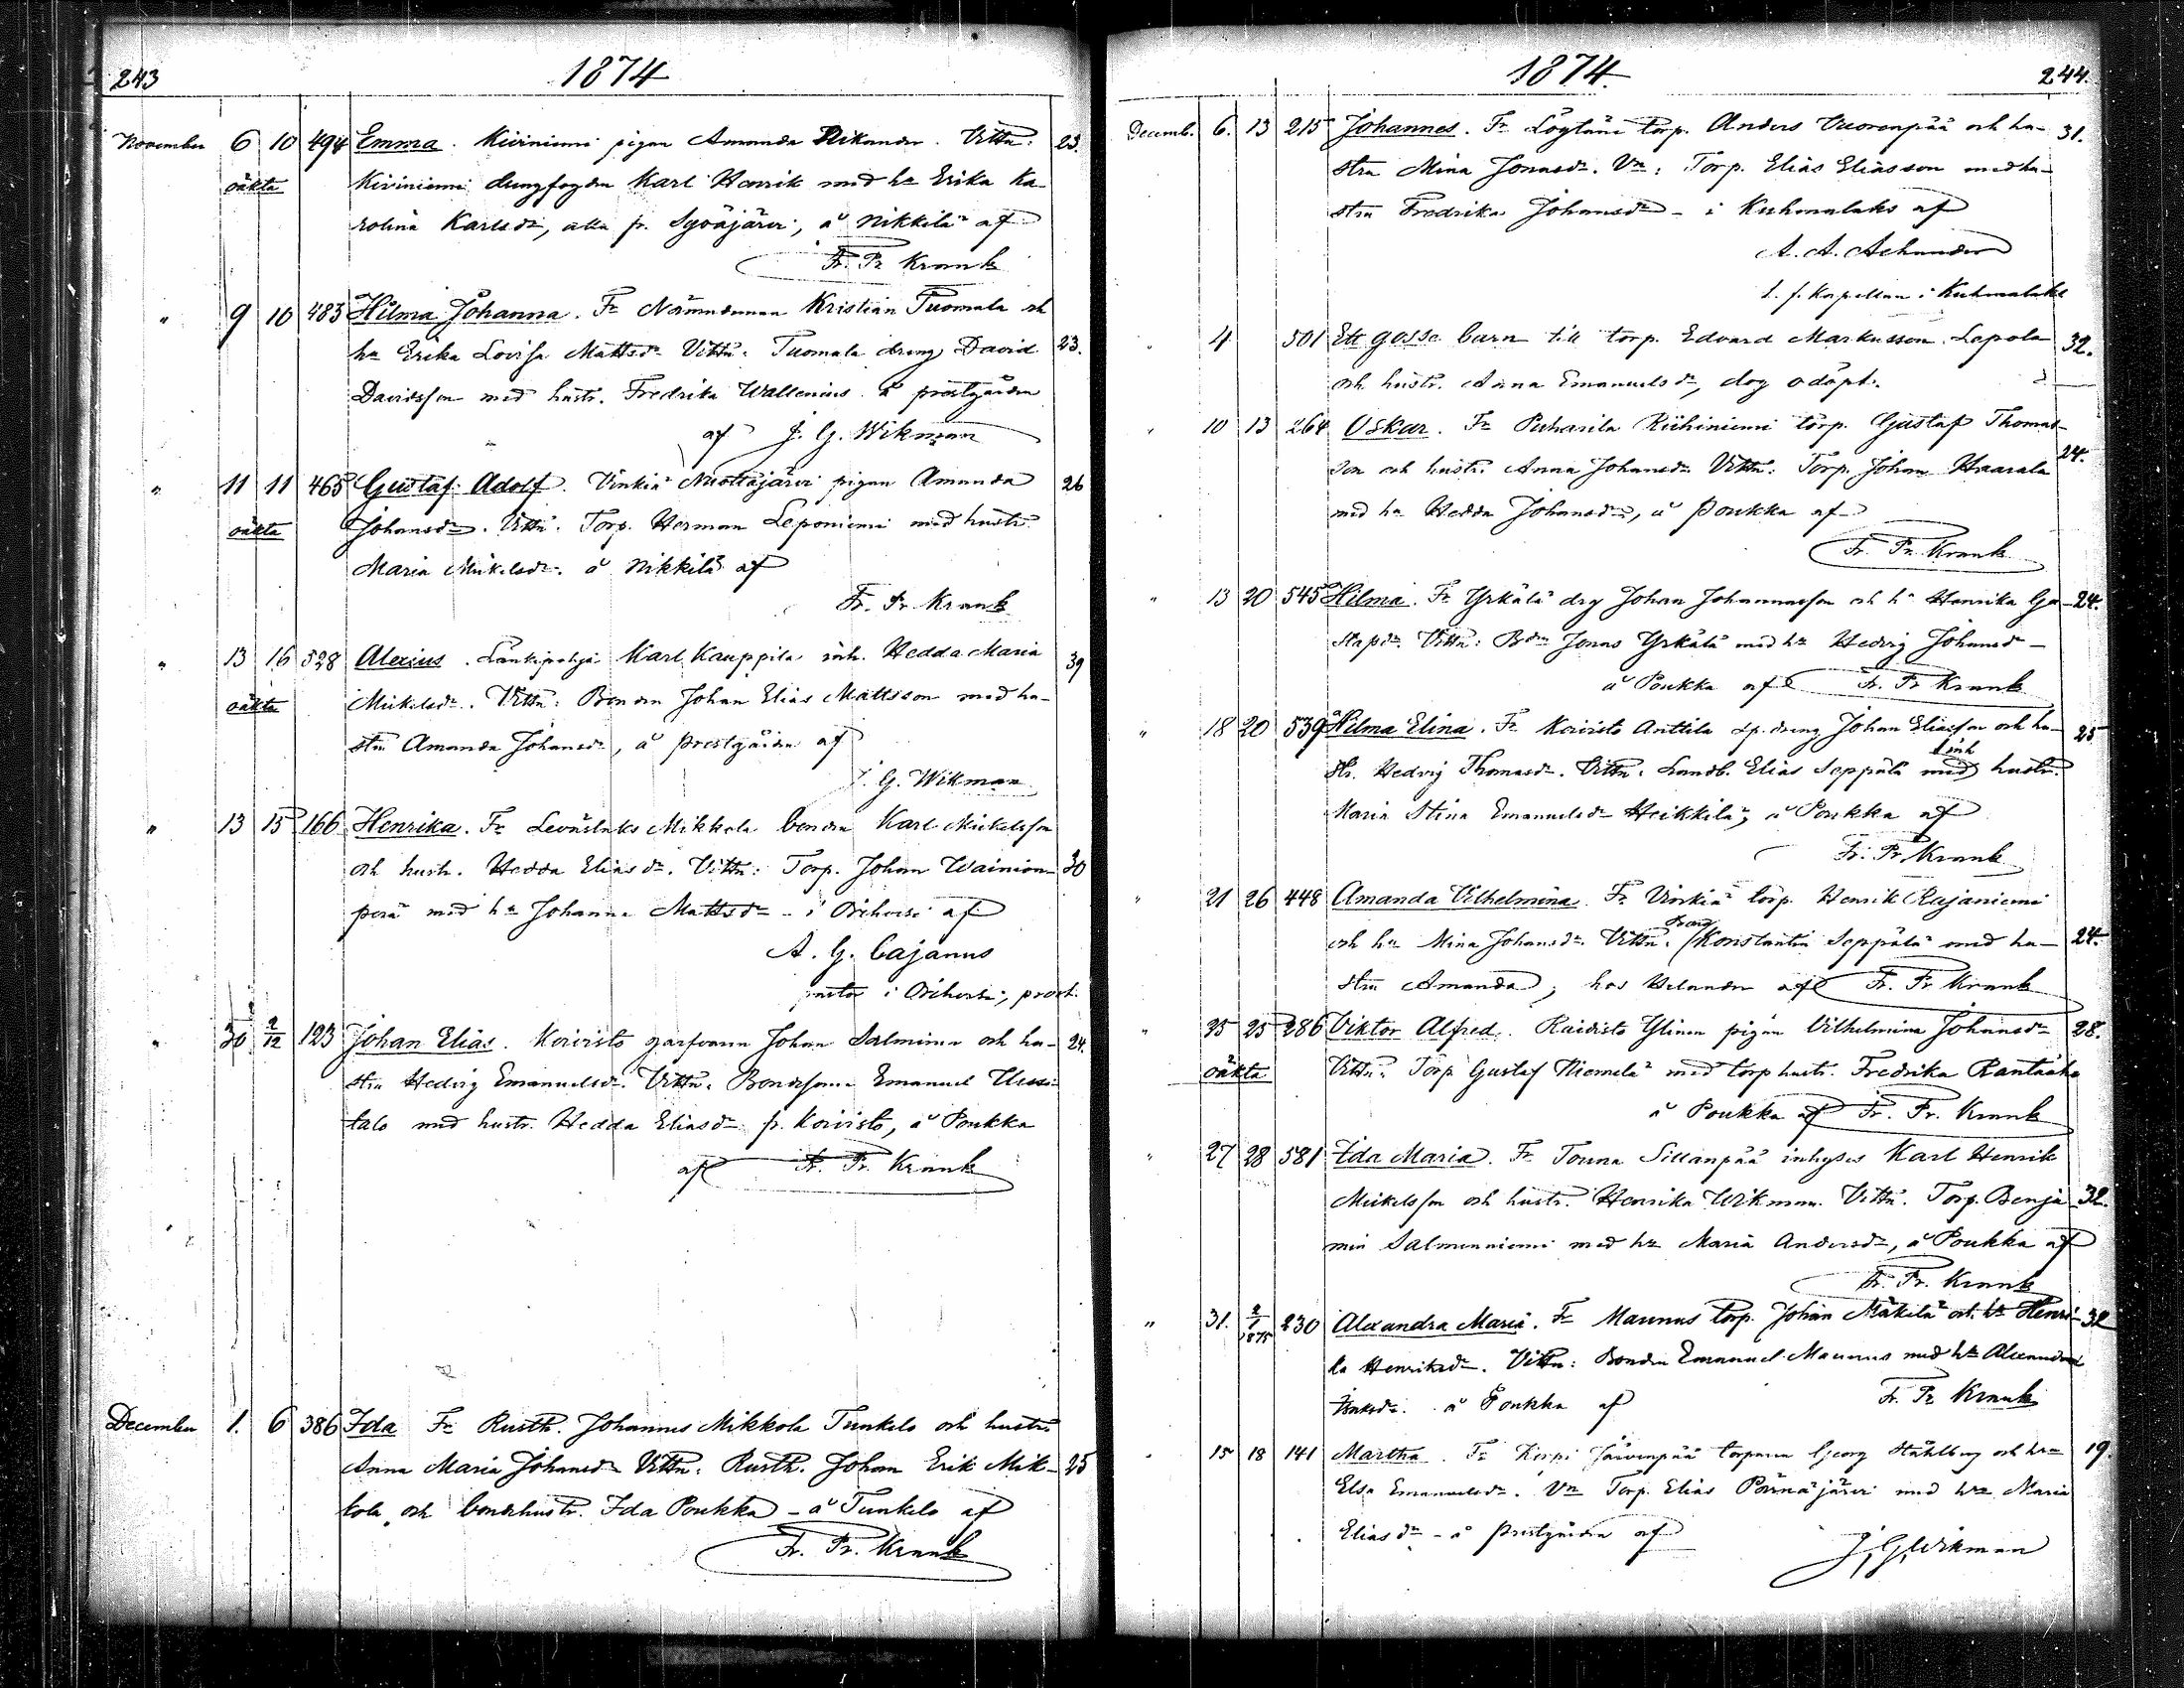 243 1874
November 6 10 494 Emma. Kiviniemi pigan Amanda Nikander. Vittn: 23.
oäkta Kiviniemi drengfogden Karl Henrik med ha Erika Ka-
rolina Karlsdr, alla fr. Syväjärvi, å Nikkilä af
Fr. Fr. Krank
" 9 10 483 Hilma Johanna. Fr Nämndeman Kristian Tuomala och
ha Erika Lovisa Mattsdr Vittn: Tuomala dreng David 23.
Davidsson med hustr. Fredrika Wallenius å prestgården
af J. G. Wikman
" 11 11 465 Gustaf Adolf. Vinkiä Nuottajärvi pigan Amanda 26
oäkta Johansdr. Vittn. Torp. Herman Leponiemi med hustr.
Maria Mickelsdr. å Nikkilä af
Fr. Fr. Krank
" 13 16 528 Alexius. Länkipohja Karl Kauppila inh. Hedda Maria 39
oäkta Mickelsdr. Vittn: Bonden Johan Elias Mattsson med hu-
stru Amanda Johansdr, å prestgården af
J. G. Wikman
" 13 15 166 Henrika. Fr Leväslaks Mikkola bonden Karl Mickelsson
och hustr. Hedda Eliasdr. Vittn: Torp. Johan Wainion- 30
perä med ha Johanna Mattsdr - i Orihvesi af
A. G. Cajanus
pastor i Orihvesi, prost.
" 30 2/12 123 Johan Elias. Koivisto garfvaren Johan Salminen och hu- 24.
stru Hedvig Emanuelsdr. Vittn: Bondesonen Emanuel Uusi-
talo med hustr. Hedda Eliasdr fr. Koivisto, å Poukka
af Fr. Fr. Krank
December 1. 6 386 Ida Fr Rusth. Johannes Mikkola Tunkelo och hustr.
Anna Maria Johansdr Vittn: Rusth. Johan Erik Mik- 25
kola och bondehustr. Ida Poukka - å Tunkelo af
Fr. Fr. Krank
1874. 244.
Decemb. 6. 13 215 Johannes. Fr Löytäne torp. Anders Vuorenpää och hu- 31.
stru Mina Jonasdr. Vn: Torp. Elias Eliasson med hu-
stru Fredrika Johansdr - i Kuhmalaks af
A. A. Achander
t. f. Kapellan i Kuhmalaks
" 4 501 Ett gosse barn till torp. Edvard Markusson Lapola 32.
och hustr. Anna Emanuelsdr, dog odöpt.
" 10 13 264 Oskar. Fr Puharila Riihiniemi torp. Gustaf Thomas-
son och hustr. Anna Johansdr Vittn: Torp. Johan Haarala 24.
med ha Hedda Johansdr, å Poukka af
Fr. Fr. Krank
" 13 20 545 Hilma. Fr Yrkälä drg Johan Johannesson och ha Henrika Gu- 24.
stafsdr. Vittn: Bden Jonas Yrkälä med ha Hedvig Johansdr -
å Poukka af Fr. Fr. Krank
" 18 20 539 Hilma Elina. Fr Koivisto Anttila dreng Johan Eliasson och hu- 25
str. Hedvig Thomasdr. Vittn: Landb. Elias Seppälä med inh hustr.
Maria Stina Emanuelsdr Heikkilä, å Poukka af
Fr. Fr. Krank
" 21 26 448 Amanda Vilhelmina. Fr Vinkiä torp. Henrik Rajaniemi
och ha Mina Johansdr. Vittn: Dreng Konstantin Seppälä med hu- 24.
stru Amanda, hos Helander af Fr. Fr. Krank
" 25 25 286 Viktor Alfred. Raidisto Ylinen pigan Vilhelmina Johansdr 28.
oäkta Vittn: Torp Gustaf Niemelä med torp hustr. Fredrika Rantaaho
å Poukka af Fr. Fr. Krank
" 27 28 581 Ida Maria. Fr Touna Sillanpää inhyses Karl Henrik
Mickelsson och hustr. Henrika Wikman. Vittn. Torp. Benja- 32.
min Salmenniemi med ha Maria Andersdr, å Poukka af
Fr. Fr. Krank
" 31. 2/1 1875 230 Alexandra Maria. Fr Maunus torp. Johan Mäkilä och ha Henri- 32
ka Henriksdr. Vittn: Bonden Emanuel Maunus med ha Alexandra
Isaksdr. å Poukka af Fr. Fr. Krank
" 15 18 141 Martha. Fr Korpi Järvenpää torparen Georg Ståhlberg och hu 19.
Elsa Emanuelsdr. Vn Torp. Elias Pärnäjärvi med hu Maria
Eliasdr - å prestgården af
J. G. Wikman